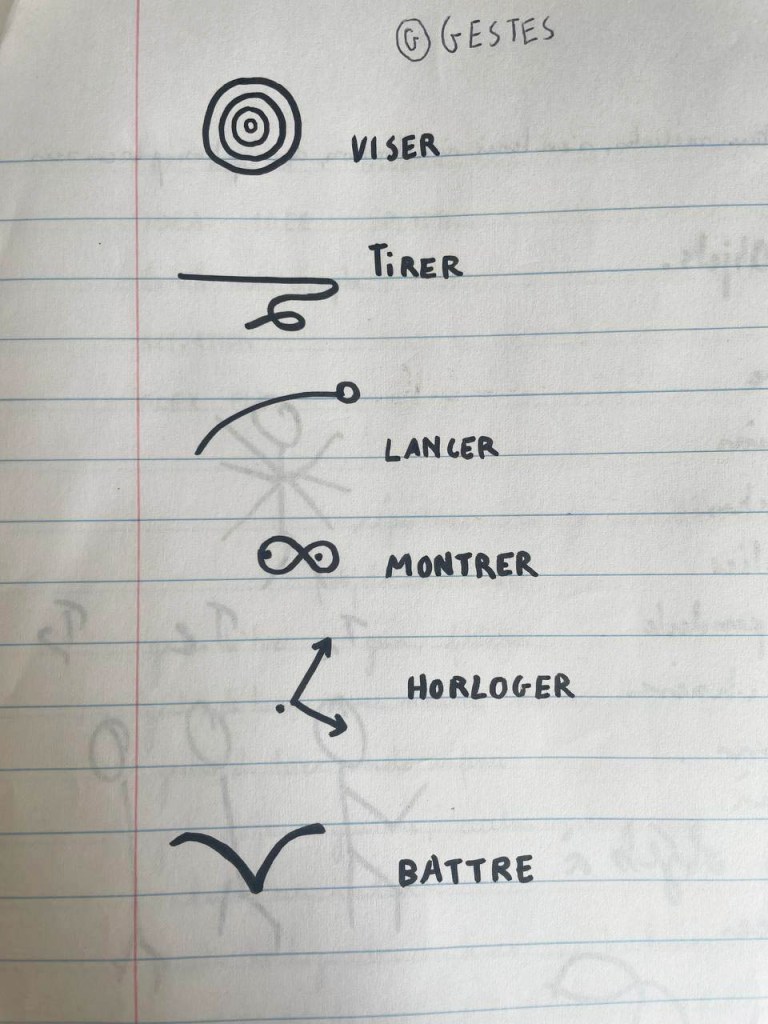 G GESTES
VISER
TIRER
LANCER
MONTRER
HORLOGER
BATTRE